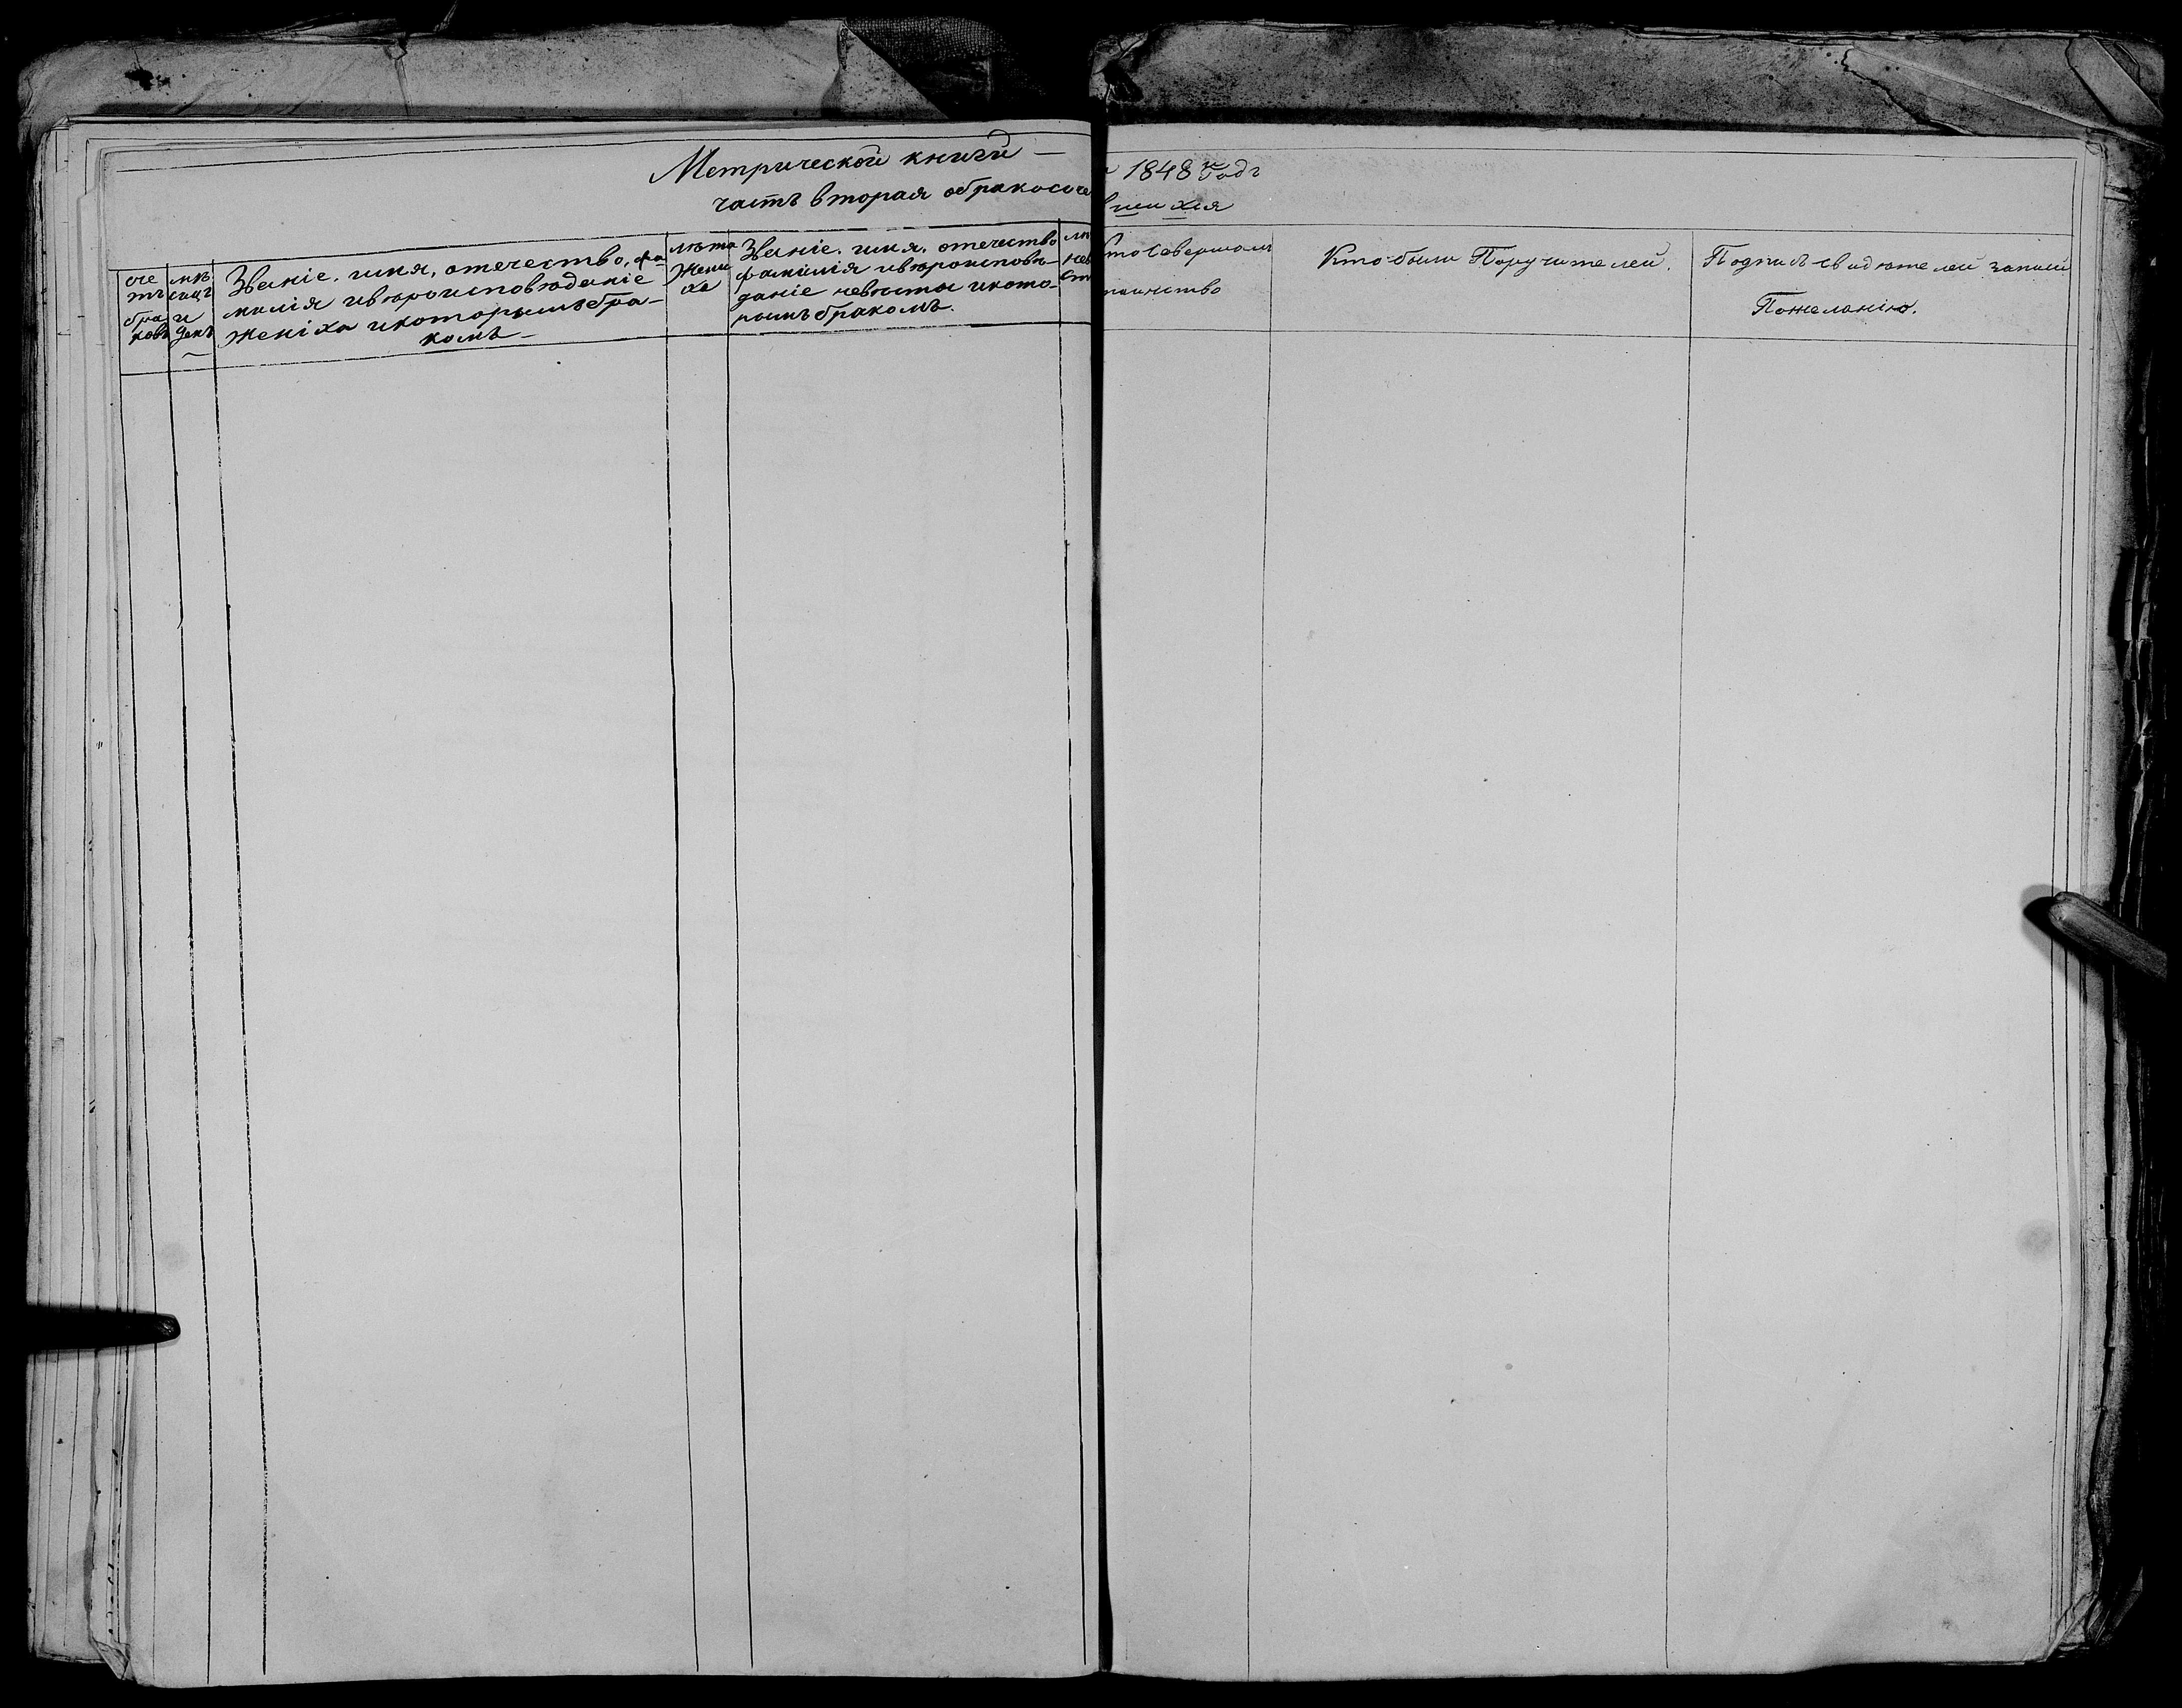 Метрической книги —
часть вторая обракосоче
1848 Годъ
вшихся
сче
тъ
бра
ковъ
мѣ
сяцъ
и
день
Званіе. имя, отечество, фа-
милія ивѣроисповѣданіе
женіха икоторымъ бра-
комъ —
лѣта
Жени
ха
Званіе. имя. отечество
фамилія ивѣроисповѣ-
даніе невѣсты икото-
рымъ бракомъ.
лѣ
нев
ст
то Совершалъ
таинство
Кто были Поручителей.
Подпись свидѣтелей записи
Пожеланію.